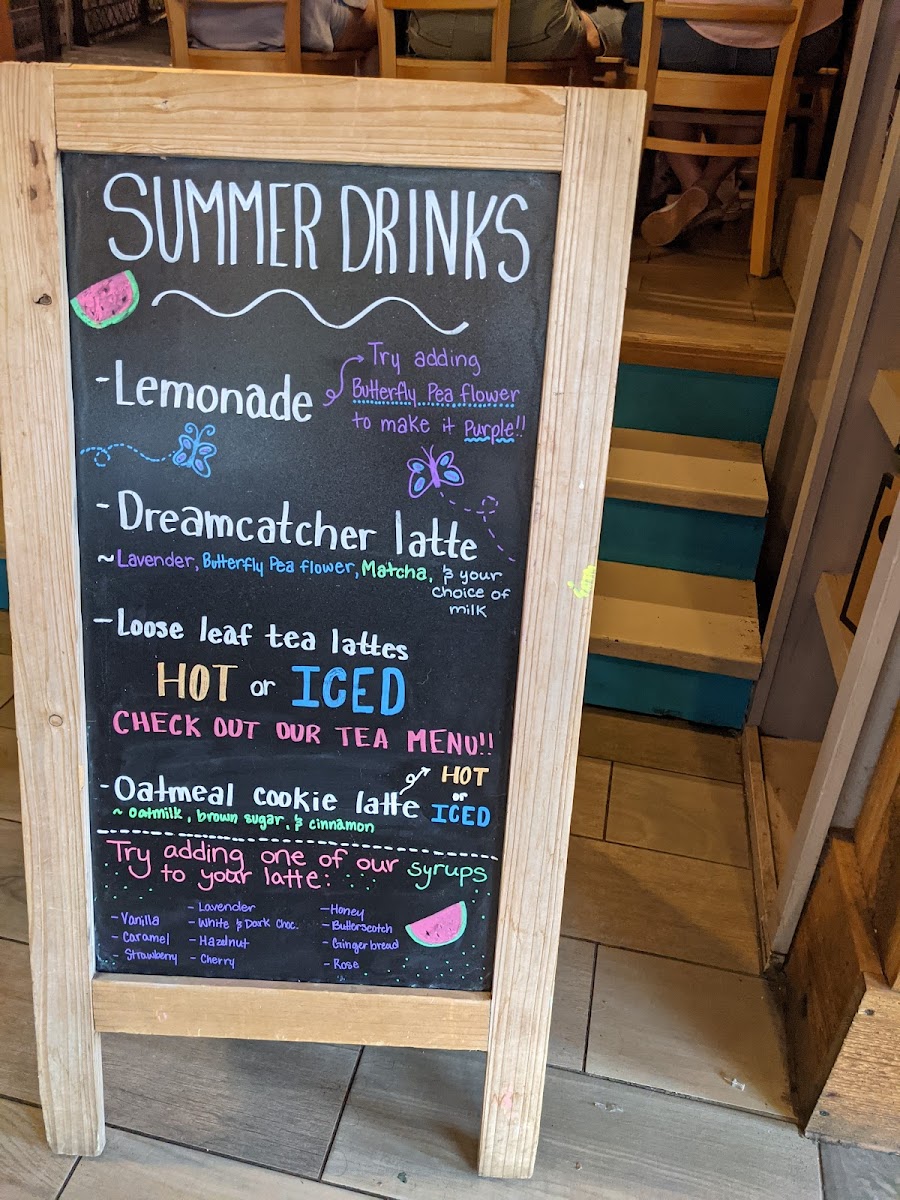 SUMMER DRINKS
-Lemonade
Try adding
Butterfly Pea flower
to make it Purple!!
-Dreamcatcher latte
~Lavender, Butterfly Pea flower, Matcha, & your
choice of
milk
-Loose leaf tea lattes
HOT or ICED
CHECK OUT OUR TEA MENU!!
-Oatmeal cookie latte
HOT
or
ICED
~ oatmilk, brown sugar, & cinnamon
Try adding one of our syrups
to your latte:
-Vanilla
-Caramel
-Strawberry
-Lavender
-White & Dark Choc.
-Hazelnut
-Cherry
-Honey
-Butterscotch
-Gingerbread
-Rose